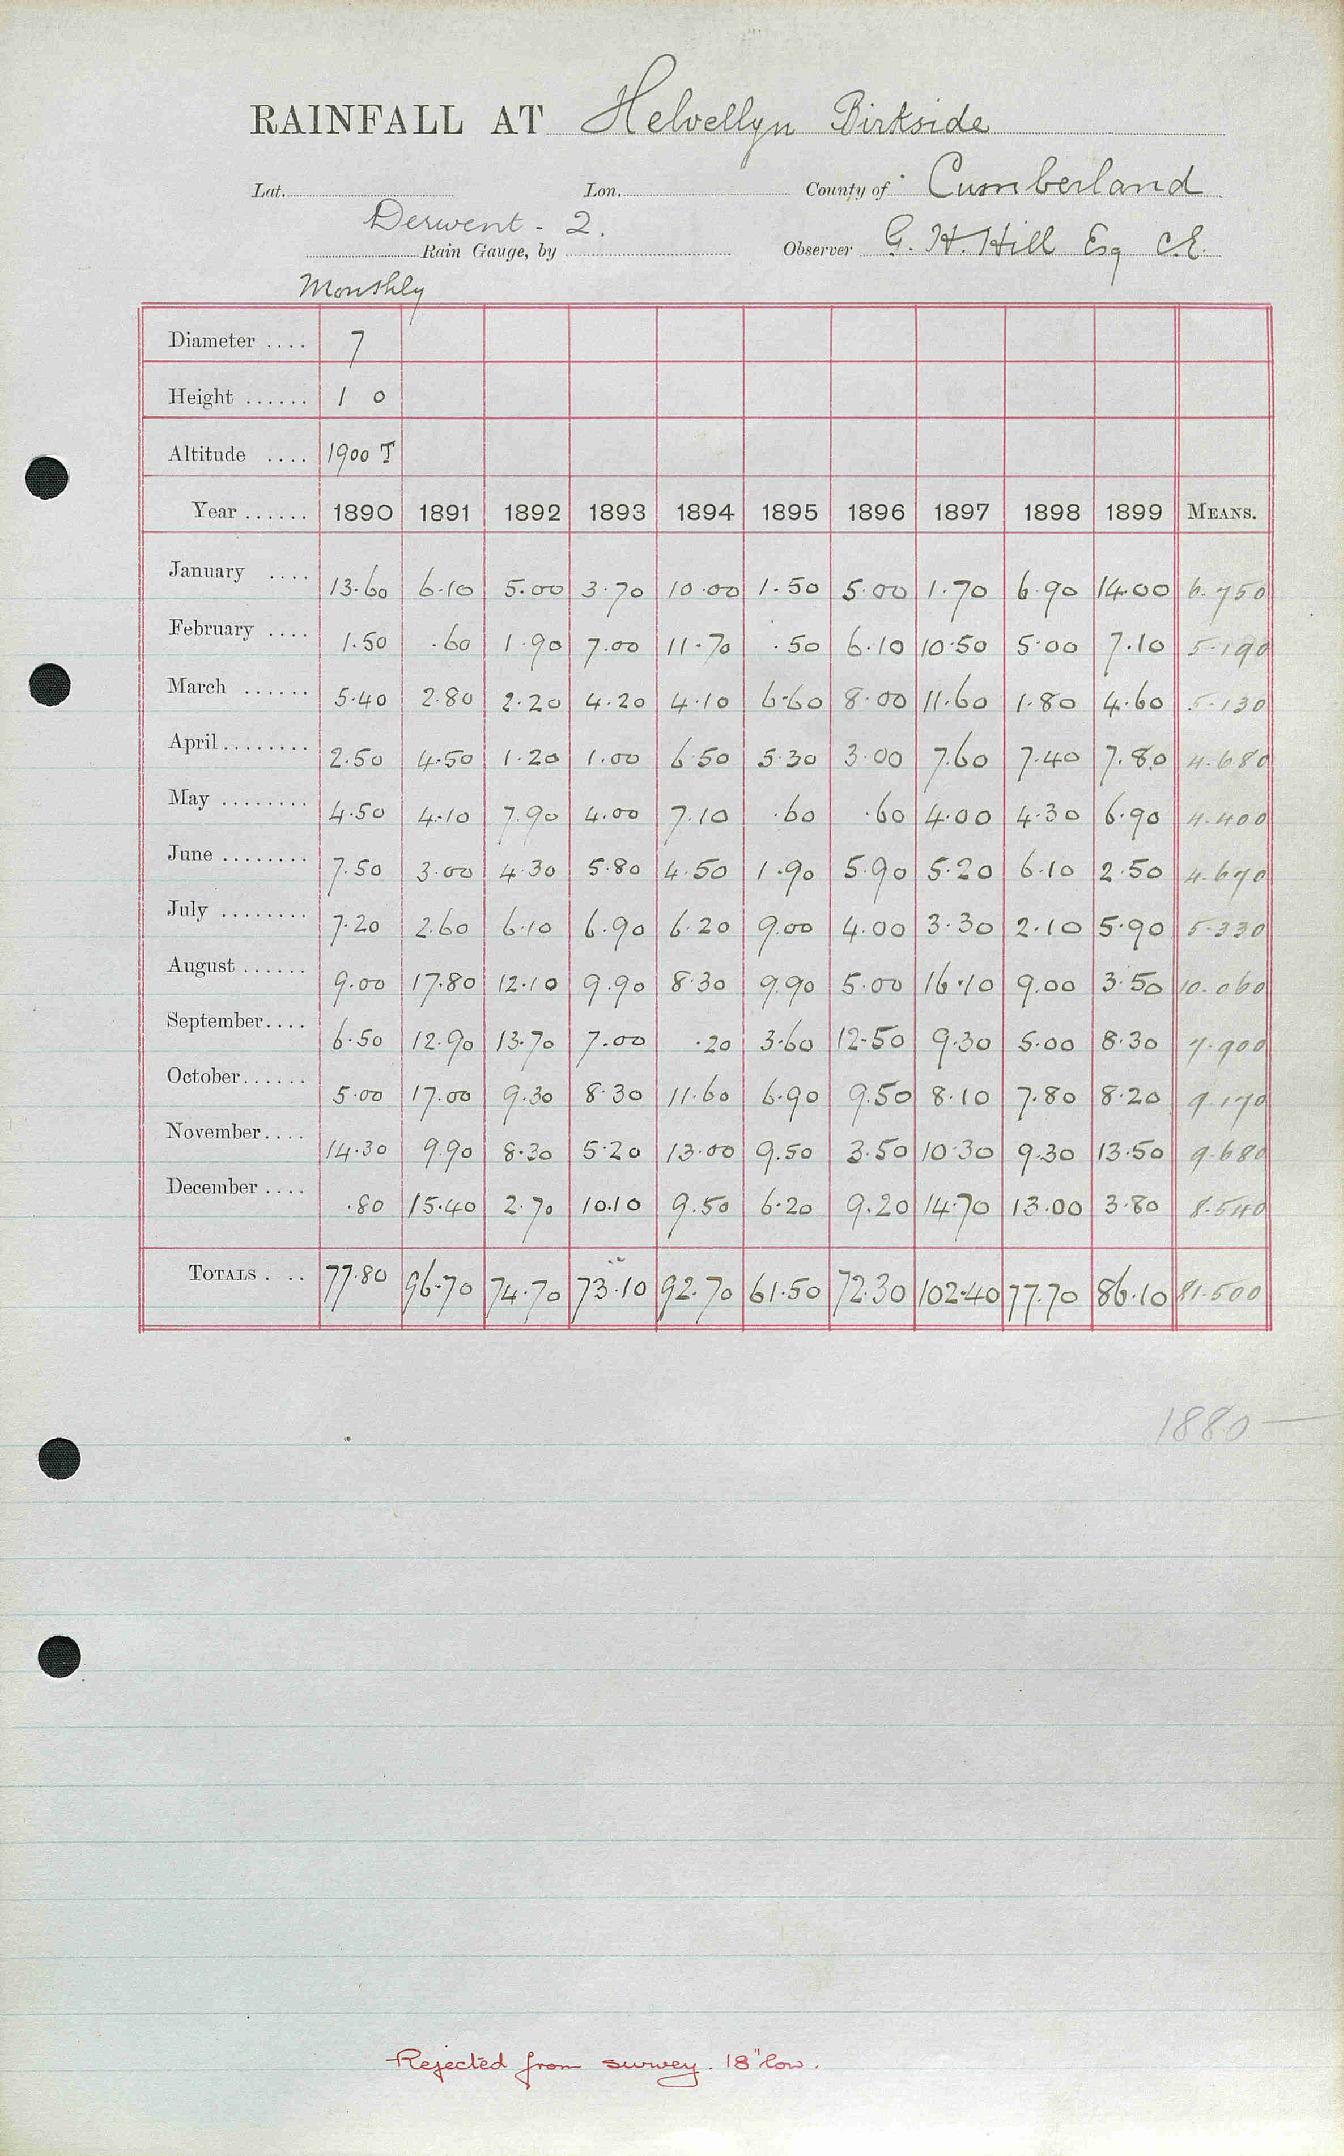 RAINFALL AT Helvellyn Birkside
Lat. Lon. County of Cumberland
Derwent - 2.
Rain Gauge, by Observer G. H. Hill Esq C.E.
Monthly
Diameter .... 7
Height ...... 1 0
Altitude .... 1900 T
Year ...... 1890 1891 1892 1893 1894 1895 1896 1897 1898 1899 MEANS.
January .... 13.60 6.10 5.00 3.70 10.00 1.50 5.00 1.70 6.90 14.00 6.750
February .... 1.50 .60 1.90 7.00 11.70 .50 6.10 10.50 5.00 7.10 5.190
March ...... 5.40 2.80 2.20 4.20 4.10 6.60 8.00 11.60 1.80 4.60 5.130
April ........ 2.50 4.50 1.20 1.00 6.50 5.30 3.00 7.60 7.40 7.80 4.680
May ........ 4.50 4.10 7.90 4.00 7.10 .60 .60 4.00 4.30 6.90 4.400
June ........ 7.50 3.00 4.30 5.80 4.50 1.90 5.90 5.20 6.10 2.50 4.670
July ........ 7.20 2.60 6.10 6.90 6.20 9.00 4.00 3.30 2.10 5.90 5.330
August ...... 9.00 17.80 12.10 9.90 8.30 9.90 5.00 16.10 9.00 3.50 10.060
September.... 6.50 12.90 13.70 7.00 .20 3.60 12.50 9.30 5.00 8.30 7.900
October...... 5.00 17.00 9.30 8.30 11.60 6.90 9.50 8.10 7.80 8.20 9.170
November.... 14.30 9.90 8.30 5.20 13.00 9.50 3.50 10.30 9.30 13.50 9.680
December .... .80 15.40 2.70 10.10 9.50 6.20 9.20 14.70 13.00 3.80 8.540
TOTALS .... 77.80 96.70 74.70 73.10 92.70 61.50 72.30 102.40 77.70 86.10 81.500
1880 —
Rejected from survey. 18" low.